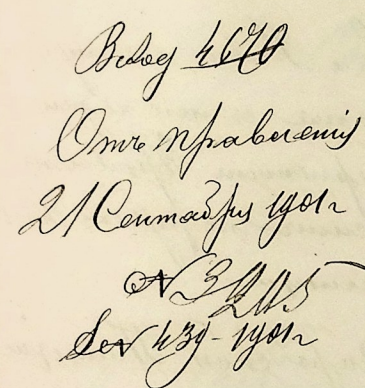 4670
Отъ правленія
21 Сентября 1901 г
№ 3205
439 - 1901 г